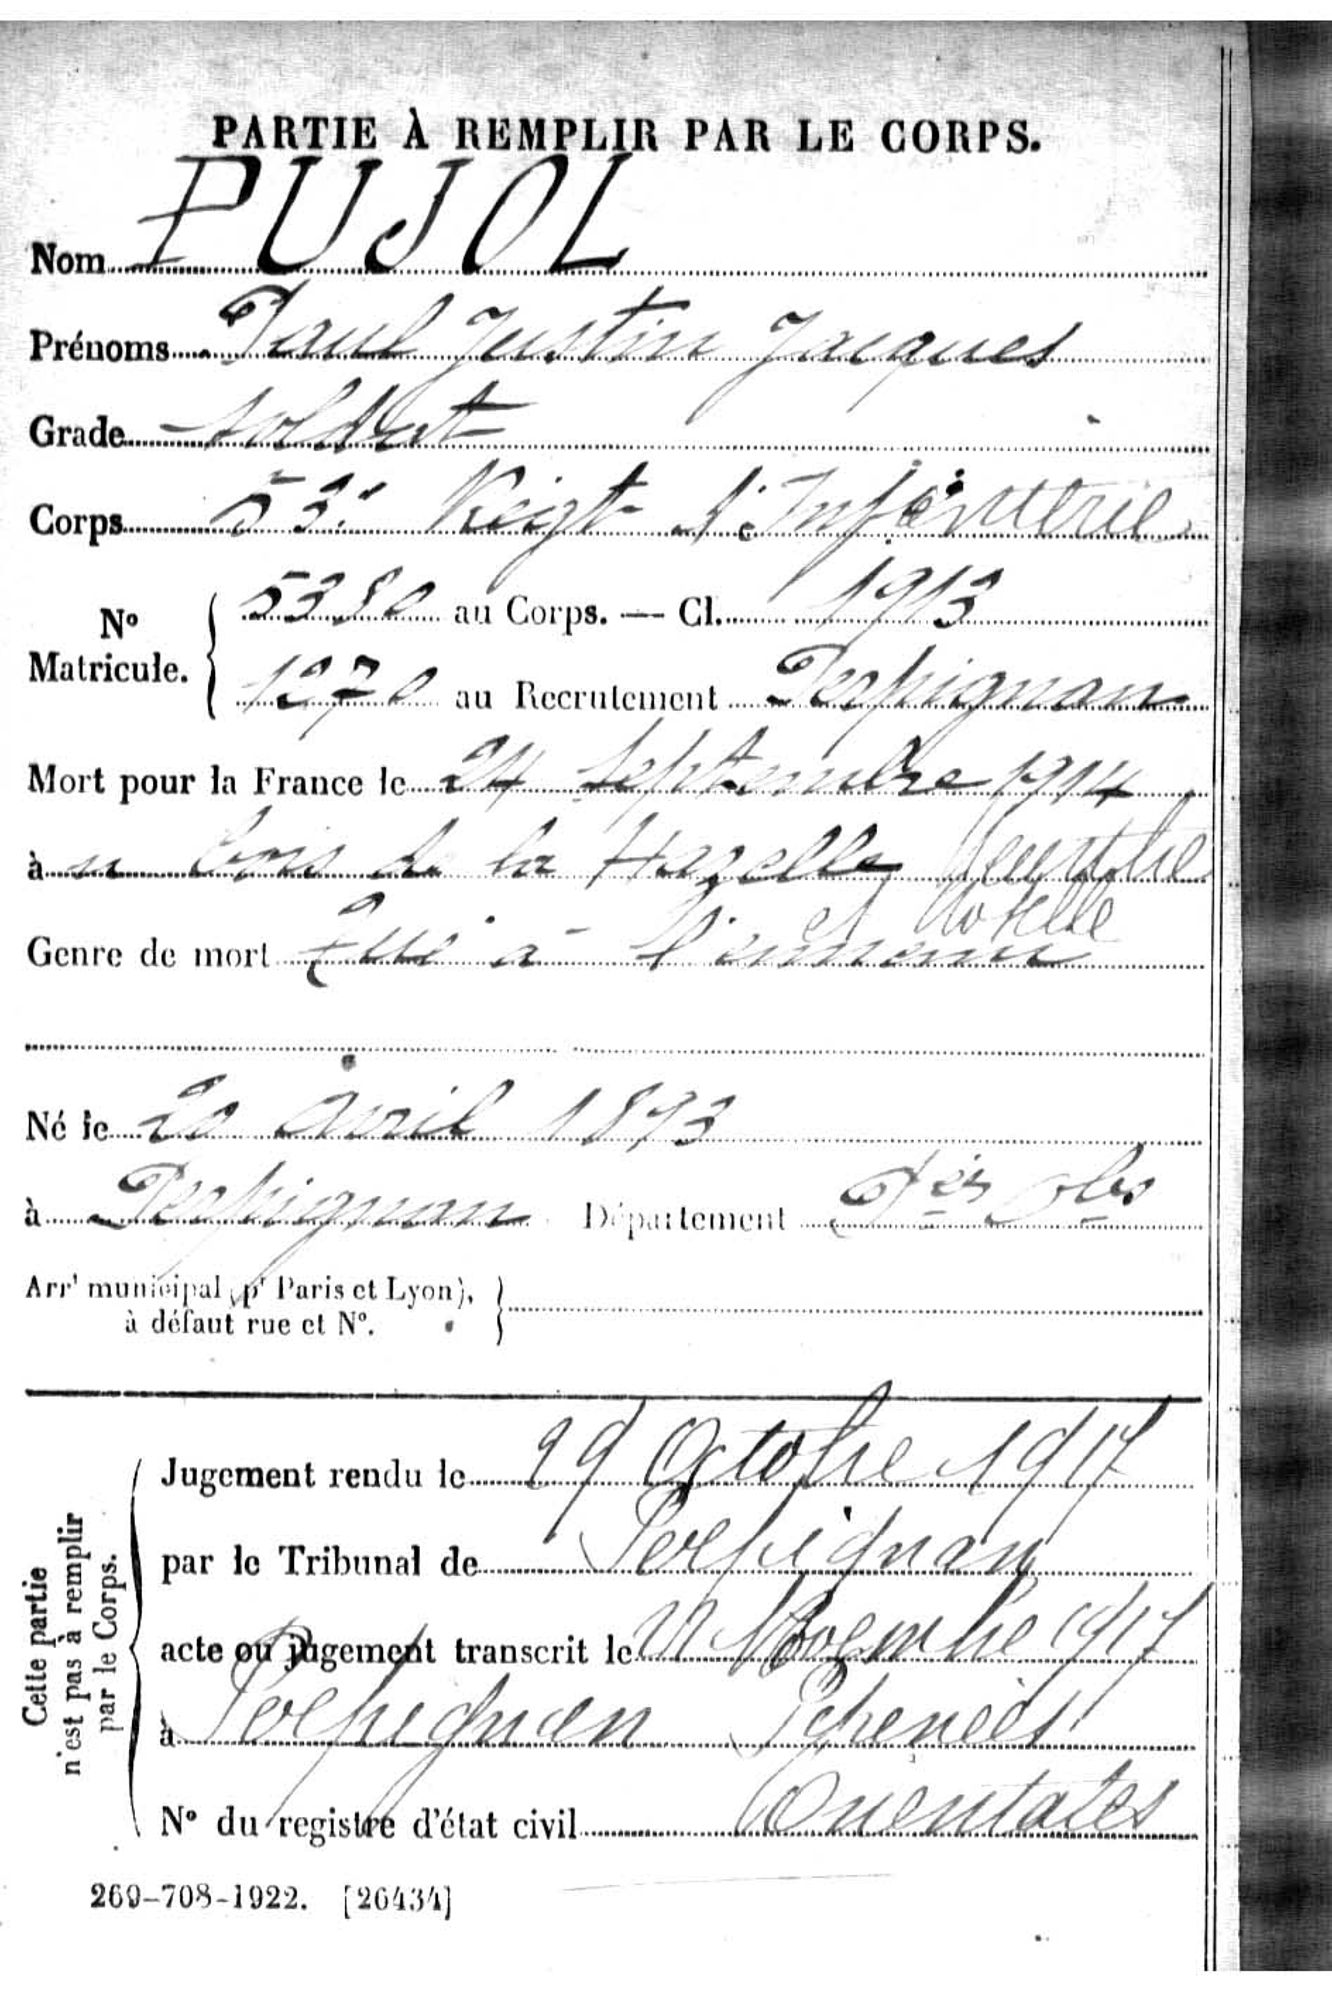 PARTIE À REMPLIR PAR LE CORPS.
Nom PUJOL
Prénoms Paul Justin Jacques
Grade soldat
Corps 53e Régt d'Infanterie
No Matricule. 5380 au Corps. — Cl. 1913
1270 au Recrutement Perpignan
Mort pour la France le 24 septembre 1914
à bois de la Hazelle Meurthe
et Moselle
Genre de mort Tué à l'ennemi
Né le 20 avril 1893
à Perpignan Département Pées Oles
Arrt municipal (pr Paris et Lyon),
à défaut rue et No.
Cette partie
n'est pas à remplir
par le Corps.
Jugement rendu le 29 Octobre 1917
par le Tribunal de Perpignan
acte ou jugement transcrit le Novembre 1917
à Perpignan Pyrenées
Orientales
No du registre d'état civil
269-708-1922. [26434]